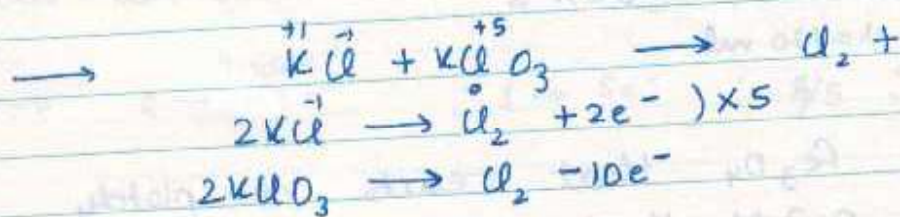 ⟶ K⁺¹ Cl⁻¹ + KCl⁺⁵O₃ ⟶ Cl₂ +
2KCl⁻¹ ⟶ Cl₂⁰ + 2e⁻ ) × 5
2KClO₃ ⟶ Cl₂ - 10e⁻